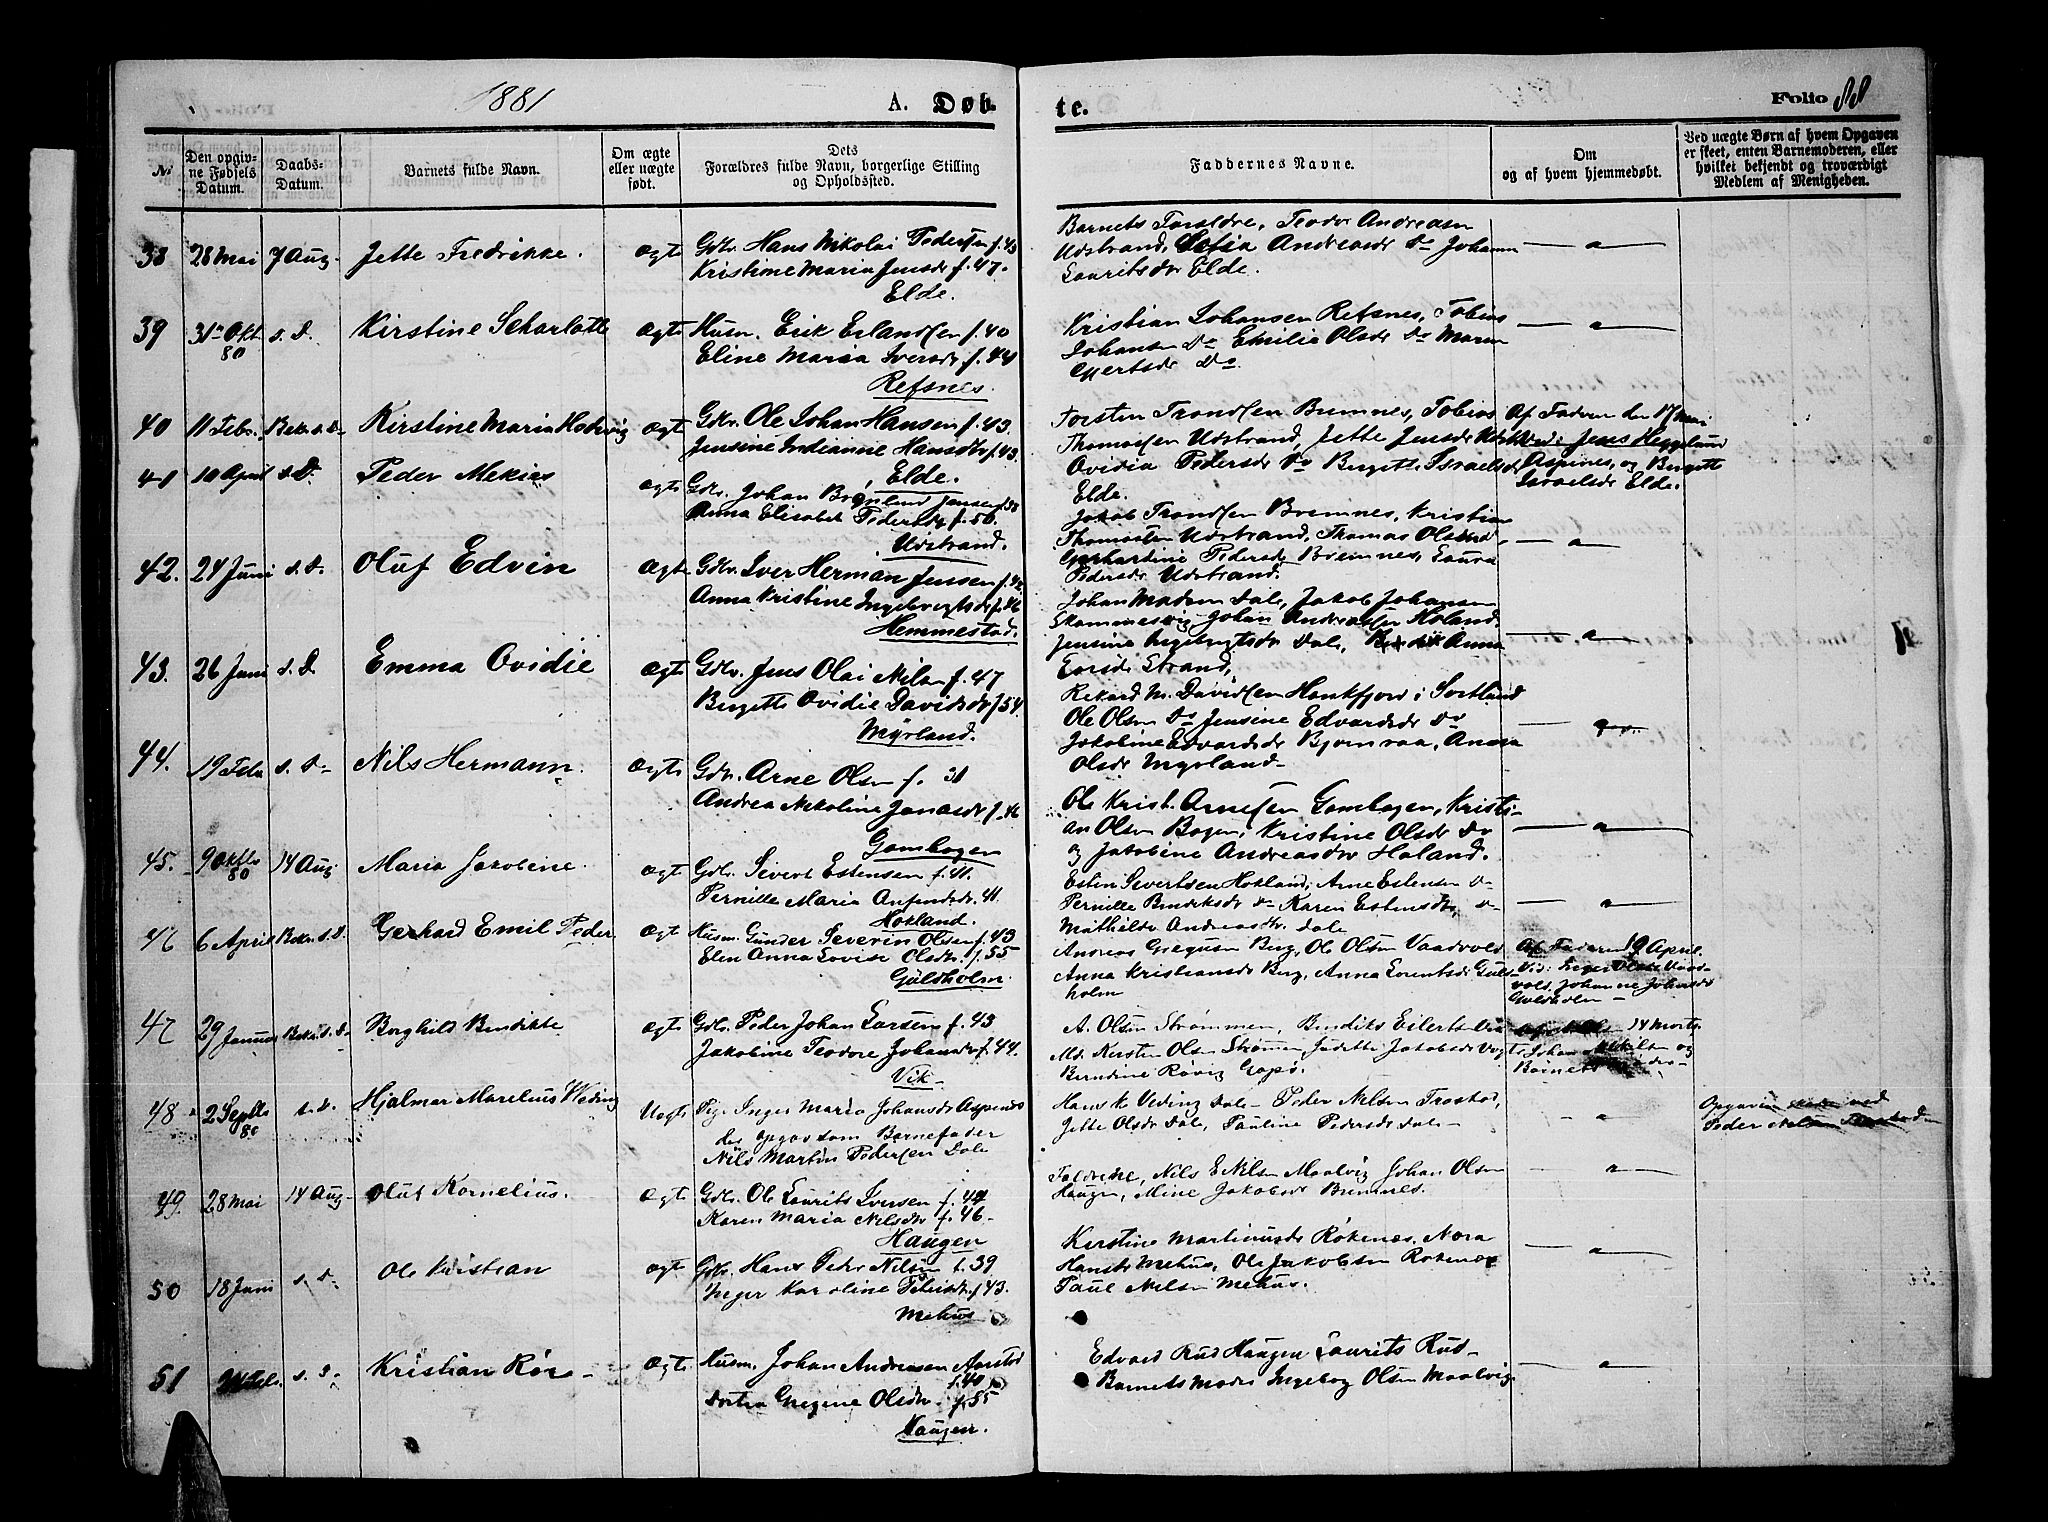 1881
A. Døb-
te.
Folio 88
No
Den opgiv-
ne Fødsels
Datum.
Daabs-
Datum.
Barnets fulde Navn.
Om ægte
eller uægte
født.
Dets
Forældres fulde Navn, borgerlige Stilling
og Opholdssted.
Faddernes Navne.
Om
og af hvem hjemmedøbt.
Ved uægte Børn af hvem Opgaven
er skeet, enten Barnemoderen, eller
hvilket bekjendt og troværdigt
Medlem af Menigheden.
38 28 Mai 7 Aug. Jette Fredrikke. Ægte Gdbr. Hans Nikolai Pedersen f. 43
Kristine Maria Jensdr f. 47.
Elde.
Barnets Forældre, Teodor Andreasen
Udstrand, Sofia Andreasdr Do Johanna
Lauritsdr Elde.
39 31te Okt. 80 s. D. Kirstine Scharlotte Ægte Husm. Erik Erlandsen f. 40
Eline Maria Iversdr f. 44
Refsnes.
Kristian Johansen Refsnes, Tobias
Johansen Do Emilie Olsdr Do Maren
Evertsdr Do
40 11 Febr. Bekr. s. D. Kirstine Maria Hedvig Ægte Gdbr. Ole Johan Hansen f. 43
Jensine Indianne Hansdtr f. 43.
Elde.
Torsten Trondsen Bremnes, Tobias
Thomassen Udstrand, Jette Jensdr
Ovidia Pedersdr Do Bergitte Israelsdr
Elde.
Af Faderen den 17 Mai
Vid: Jens Heggelund
Aspenes, og Bergitte
Israelsdr Elde.
41 10 April s. D. Peder Mekias Ægte Gdbr. Johan Brønlund Jensen f. 38
Anna Elisabet Pedersdr f. 50.
Udstrand.
Jakob Trondsen Bremnes, Kristian
Thomassen Udstrand, Thomas Olsen
Gerhardine Pedersdr Bremnes, Laura
Pedersdr Udstrand.
42. 24 Juni s. D. Oluf Edvin Ægte Gdbr. Iver Herman Jensen f. 42
Anna Kristine Ingebrigtsdr f. 46
Hemmestad.
Johan Madsen Dale, Jakob Johansen
Skammesvig Johan Andreassen Holand.
Jensine Ingebrigtsdr Dale, Anna
Larsdr Strand,
43. 26 Juni s. D. Emma Ovidie Ægte Gdbr. Jens Olai Nilsen f. 47
Bergitte Ovidie Davidsdr f. 54.
Myrland.
Rekard M. Davidsen Hankfjord i Sortland
Ole Olsen Do Jensine Edvardsdr Do
Jakobine Edvardsdr Bjørnraa, Anna
Olsdr Myrland
44. 19 Febr s. D. Nils Hermann. Ægte Gdbr. Arne Olsen f. 31
Andrea Nikoline Jonasdr f. 46
Gambogen
Ole Krist. Arnesen Gambogen, Kristi-
an Olsen Bogen, Kristine Olsdr Do
og Jakobine Andreasdtr Holand.
45. 9 Oktbr 80 14 Aug. Maria Jakobine. Ægte Gdbr. Sivert Estensen f. 41.
Pernille Maria Anfindsdr. 41.
Hokland.
Esten Sivertsen Hokland, Arne Estensen Do
Pernille Bendiksdr Do Karen Estensdtr, Do
Mathilde Andreasdtr. Dale
46 6 April Bekr. s. D. Gerhard Emil Peder Ægte Husm. Gunder Severin Olsen f. 43
Elen Anna Lovise Olsdtr. f. 55
Guldholm.
Andreas Gregusen Berg, Ole Olsen Vaadvold
Anna Kristiansdr Berg, Anna Lorentsdr Guld-
holm
Af Faderen 19 April.
Vid: Inger Olsdr Vaad-
vold. Johanne Johansdr
Guldholm
47 29 Januar Bekr. s. D. Borghild Bendikte Ægte Gdbr. Peder Johan Larsen f. 43
Jakobine Teodore Johansdr f. 44.
Vik
A. Olsen Strømmen, Bendiks Eilertsen
Kersten Olsen Strømmen, Judette Jakobsdr
Berndine Røvig Gapø.
14 Marts
Johan
48 2 Septbr 80 s. D. Hjalmar Marelius Weding Uægte Pige Inger Maria Johansdr Aspenes
der opgav som Barnefader
Nils Martin Pedersen Dale
Hans K Veding Dale Peder Nilsen Trostad,
Jette Olsdr Dale, Pauline Pedersdr Dale
Opgaven skede ved
Peder Nilsen Trostad
49. 28 Mai 14 Aug. Oluf Kornelius. Ægte Gdbr. Ole Laurits Iversen f. 44
Karen Maria Nilsdtr f. 46
Haugen
Foldrene, Nils E Nilsen Maalvig Johan Olsen
Haugen, Mine Jakobsdr Bremnes.
50 18 Juni s. D. Ole Kristian Ægte Gdbr. Hans Peder Nilsen f. 39
Inger Karoline Pedersdtr. f 43.
Mehus
Kerstine Martinusdr Røkenes, Nora
Hansdr Mehus, Ole Jakobsen Røkenes
Paul Nilsen Mehus.
51 s. D. Kristian Rør Ægte Husm. Johan Andreasen Aarstad
f. 40
Dortea Gregine Olsdtr. f. 55
Haugen.
Edvard Rud Haugen Laurits Rud
Barnets Moder Ingeborg Olsen Maalvig